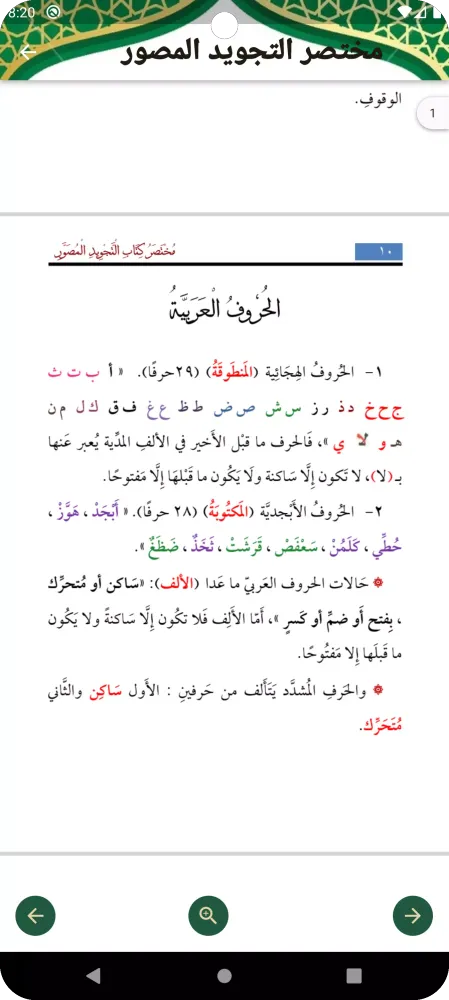 8:20
مختصر التجويد المصور
الوقوفِ.
1
١٠
مُختَصَرُ كِتَابِ التَّجوِيدِ الْمُصَوَّرِ
الحُرُوفُ الْعَرَبِيَّةُ
١- الحُرُوفُ الهِجَائِية (المَنطُوقَةُ) (٢٩حرفًا). « أ ب ت ث
ج ح خ د ذ ر ز س ش ص ض ط ظ ع غ ف ق ك ل م ن
هـ و لا ي »، فَالحرف ما قبْل الأَخير في الألفِ المدِّية يُعبر عَنها
بـ (لا)، لا تَكون إلَّا سَاكنة ولَا يَكُون ما قَبْلَهَا إلَّا مَفتوحًا.
٢- الحُرُوفُ الأَبْجديَّة (المَكتُوبَةُ) (٢٨ حرفًا). « أَبْجَدْ ، هَوَّزْ ،
حُطِّي ، كَلَمُنْ ، سَعْفَصْ ، قَرَشَتْ ، ثَخَذٌ ، ضَظَغٌ ».
۞ حَالات الحروف العَربيّ ما عَدا (الألف): «سَاكن أو مُتحرِّك
، بِفتح أَو ضمِّ أو كَسرٍ »، أمّا الألِف فَلا تكُون إلَّا سَاكنةً ولا يَكُون
ما قَبلَها إلا مَفتُوحًا.
۞ والحَرفِ المُشدَّد يَتَألف من حَرفينِ : الأَول سَاكِن والثَّاني
مُتَحَرِّك.